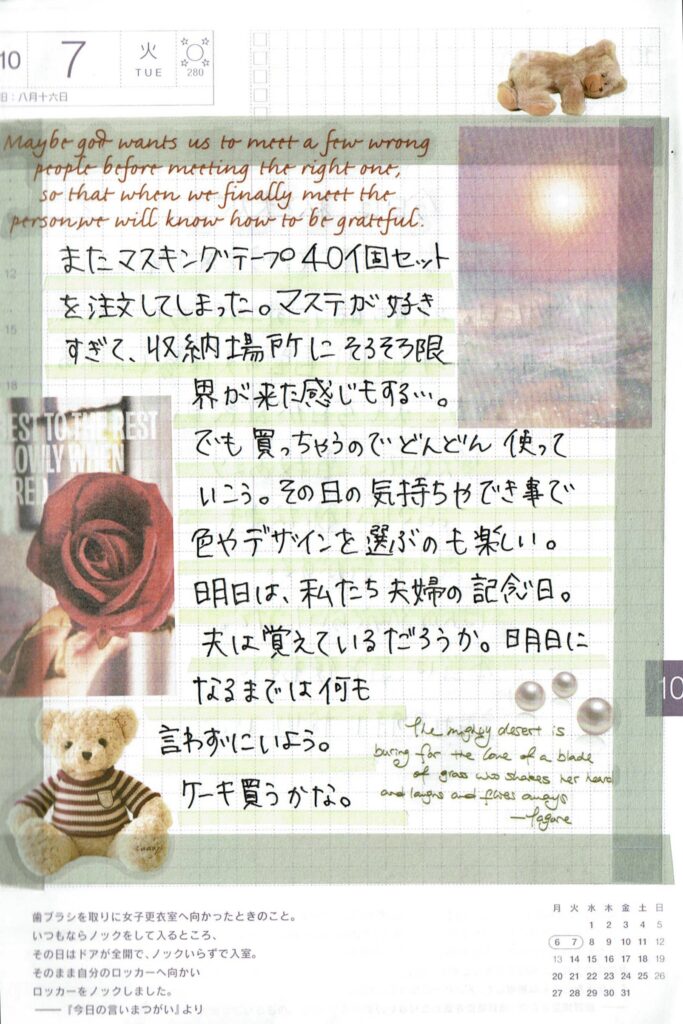 10 7 火 TUE 280
旧：八月十六日
Maybe god wants us to meet a few wrong
people before meeting the right one,
so that when we finally meet the
person,we will know how to be grateful.
またマスキングテープ40個セット
を注文してしまった。マステが好き
すぎて、収納場所にそろそろ限
界が来た感じもする…。
でも買っちゃうのでどんどん使って
いこう。その日の気持ちやでき事で
色やデザインを選ぶのも楽しい。
明日は、私たち夫婦の記念日。
夫は覚えているだろうか。明日に
なるまでは何も
言わずにいよう。
ケーキ買うかな。
12
15
18
EST TO THE REST
LOWLY WHEN
RED
10
The mighty desert is
buring for the love of a blade
of grass who shakes her head
and laughs and flies aways
—Tagore
歯ブラシを取りに女子更衣室へ向かったときのこと。
いつもならノックをして入るところ、
その日はドアが全開で、ノックいらずで入室。
そのまま自分のロッカーへ向かい
ロッカーをノックしました。
——『今日の言いまつがい』より
月 火 水 木 金 土 日
1 2 3 4 5
6 7 8 9 10 11 12
13 14 15 16 17 18 19
20 21 22 23 24 25 26
27 28 29 30 31